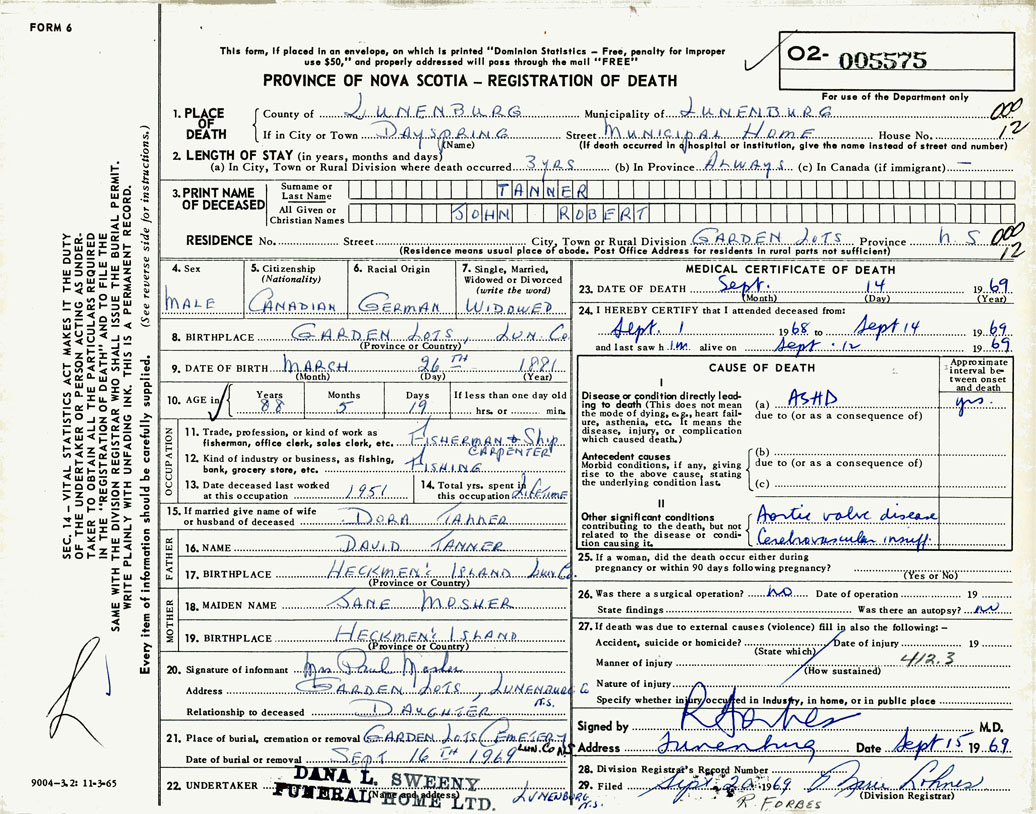 FORM 6
This form, if placed in an envelope, on which is printed "Dominion Statistics – Free, penalty for improper
use $50," and properly addressed will pass through the mail "FREE"
O2- 005575
PROVINCE OF NOVA SCOTIA – REGISTRATION OF DEATH
For use of the Department only
1. PLACE OF DEATH
County of LUNENBURG Municipality of LUNENBURG
000
12
If in City or Town DAYSPRING Street MUNICIPAL HOME House No.
(Name) (If death occurred in hospital or institution, give the name instead of street and number)
2. LENGTH OF STAY (in years, months and days)
(a) In City, Town or Rural Division where death occurred 3 YRS (b) In Province ALWAYS (c) In Canada (if immigrant) –
3. PRINT NAME OF DECEASED
Surname or Last Name TANNER
All Given or Christian Names JOHN ROBERT
RESIDENCE No. Street City, Town or Rural Division GARDEN LOTS Province N.S.
000
12
(Residence means usual place of abode. Post Office Address for residents in rural parts not sufficient)
4. Sex MALE
5. Citizenship (Nationality) CANADIAN
6. Racial Origin GERMAN
7. Single, Married, Widowed or Divorced (write the word) WIDOWED
8. BIRTHPLACE GARDEN LOTS, LUN. Co
(Province or Country)
9. DATE OF BIRTH MARCH 26TH 1881
(Month) (Day) (Year)
10. AGE in Years 88 Months 5 Days 19 If less than one day old hrs. or min.
OCCUPATION
11. Trade, profession, or kind of work as fisherman, office clerk, sales clerk, etc. FISHERMAN & SHIP CARPENTER
12. Kind of industry or business, as fishing, bank, grocery store, etc. FISHING
13. Date deceased last worked at this occupation 1951
14. Total yrs. spent in this occupation LIFETIME
15. If married give name of wife or husband of deceased DORA TANNER
FATHER
16. NAME DAVID TANNER
17. BIRTHPLACE HECKMEN'S ISLAND LUN Co.
(Province or Country)
MOTHER
18. MAIDEN NAME JANE MOSHER
19. BIRTHPLACE HECKMEN'S ISLAND
(Province or Country)
20. Signature of informant Mrs Paul Mosher
Address GARDEN LOTS, LUNENBURG Co
N.S.
Relationship to deceased DAUGHTER
21. Place of burial, cremation or removal GARDEN LOTS CEMETERY
LUN. Co NS
Date of burial or removal SEPT 16TH 1969
22. UNDERTAKER DANA L. SWEENY
FUNERAL HOME LTD. LUNENBURG
N.S.
(Name and address)
MEDICAL CERTIFICATE OF DEATH
23. DATE OF DEATH Sept. 14 1969
(Month) (Day) (Year)
24. I HEREBY CERTIFY that I attended deceased from:
Sept. 1 1968 to Sept 14 1969
and last saw him alive on Sept. 12 1969
CAUSE OF DEATH
Approximate interval between onset and death
I
Disease or condition directly leading to death (This does not mean the mode of dying, e.g., heart failure, asthenia, etc. It means the disease, injury, or complication which caused death.)
(a) ASHD yrs.
due to (or as a consequence of)
Antecedent causes
Morbid conditions, if any, giving rise to the above cause, stating the underlying condition last.
(b)
due to (or as a consequence of)
(c)
II
Other significant conditions contributing to the death, but not related to the disease or condition causing it.
Aortic valve disease
Cerebrovascular insuff.
25. If a woman, did the death occur either during pregnancy or within 90 days following pregnancy?
(Yes or No)
26. Was there a surgical operation? no Date of operation 19
State findings Was there an autopsy? no
27. If death was due to external causes (violence) fill in also the following: –
Accident, suicide or homicide? Date of injury 19
(State which)
Manner of injury 412.3
(How sustained)
Nature of injury
Specify whether injury occurred in Industry, in home, or in public place
Signed by R Forbes M.D.
Address Lunenburg Date Sept 15 1969
28. Division Registrar's Record Number
29. Filed Sept 20 1969
(Division Registrar)
R. FORBES
SEC. 14 – VITAL STATISTICS ACT MAKES IT THE DUTY
OF THE UNDERTAKER OR PERSON ACTING AS UNDER-
TAKER TO OBTAIN ALL THE PARTICULARS REQUIRED
IN THE "REGISTRATION OF DEATH" AND TO FILE THE
SAME WITH THE DIVISION REGISTRAR WHO SHALL ISSUE THE BURIAL PERMIT.
WRITE PLAINLY WITH UNFADING INK. THIS IS A PERMANENT RECORD.
Every item of information should be carefully supplied. (See reverse side for instructions.)
9004–3.2: 11-3-65